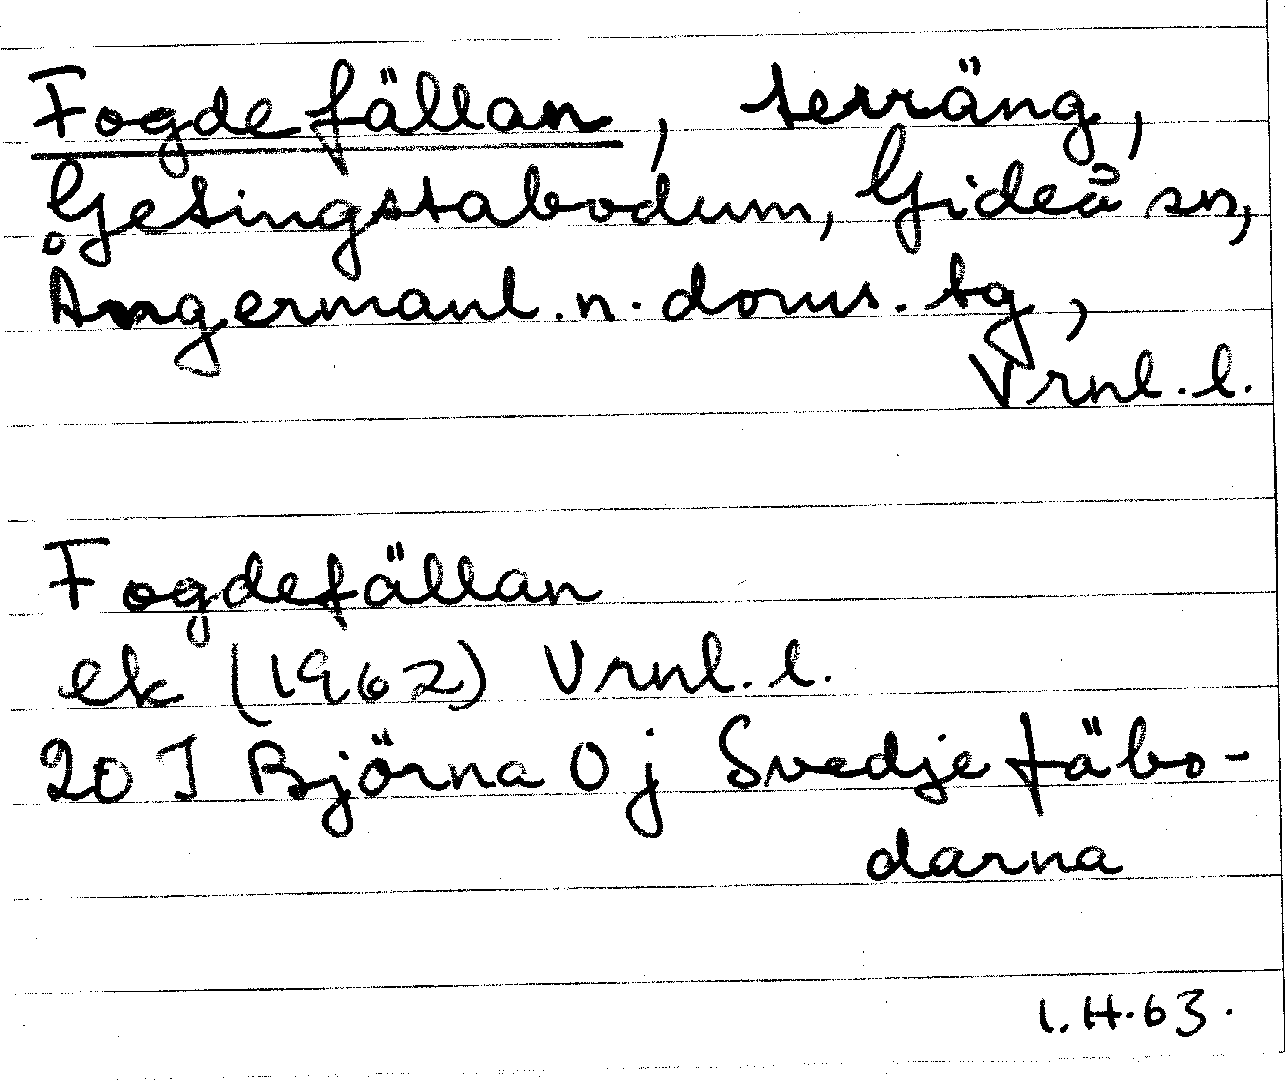 Fogdefällan, terräng,
Getingstabodum, Gideå sn,
Ångermanl. n. doms. tg,
Vrnl. l.
Fogdefällan
ek (1962) Vrnl. l.
20 I Björna 0 j Svedjefäbo-
darna
I.H.63.